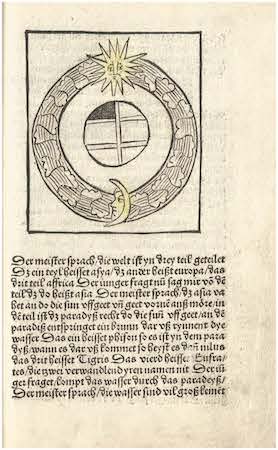 Der meister sprach/ die welt ist yn drey teil geteilet
Dz ein teyl heisset asya/ dz ander heißt europa/ das
drit teil affrica Der iunger fragt nů sag mir võ dẽ
teil/ dz do heißt asia Der meister sprach/ dz asia va
het an do die sun vff geet vnd geet vornẽ auß möre/ in
dẽ teil ist dz paradyß recht do die sun vff geet/ an dẽ
paradiß entspringet ein brun dar vß rynnent dye
wasser Das ein heisset phison so es ist yn dem para
dyß/ wann es dar vß kommet so heyst es dañ nilus
das drit heisset Tigris Das vierd heisset Eufra⸗
tes/ die zwei verwandlend yren namen nit Der iũ
ger fraget/ kompt das wasser durch das paradeyß/
Der meister sprach/ die wasser sind vil groß